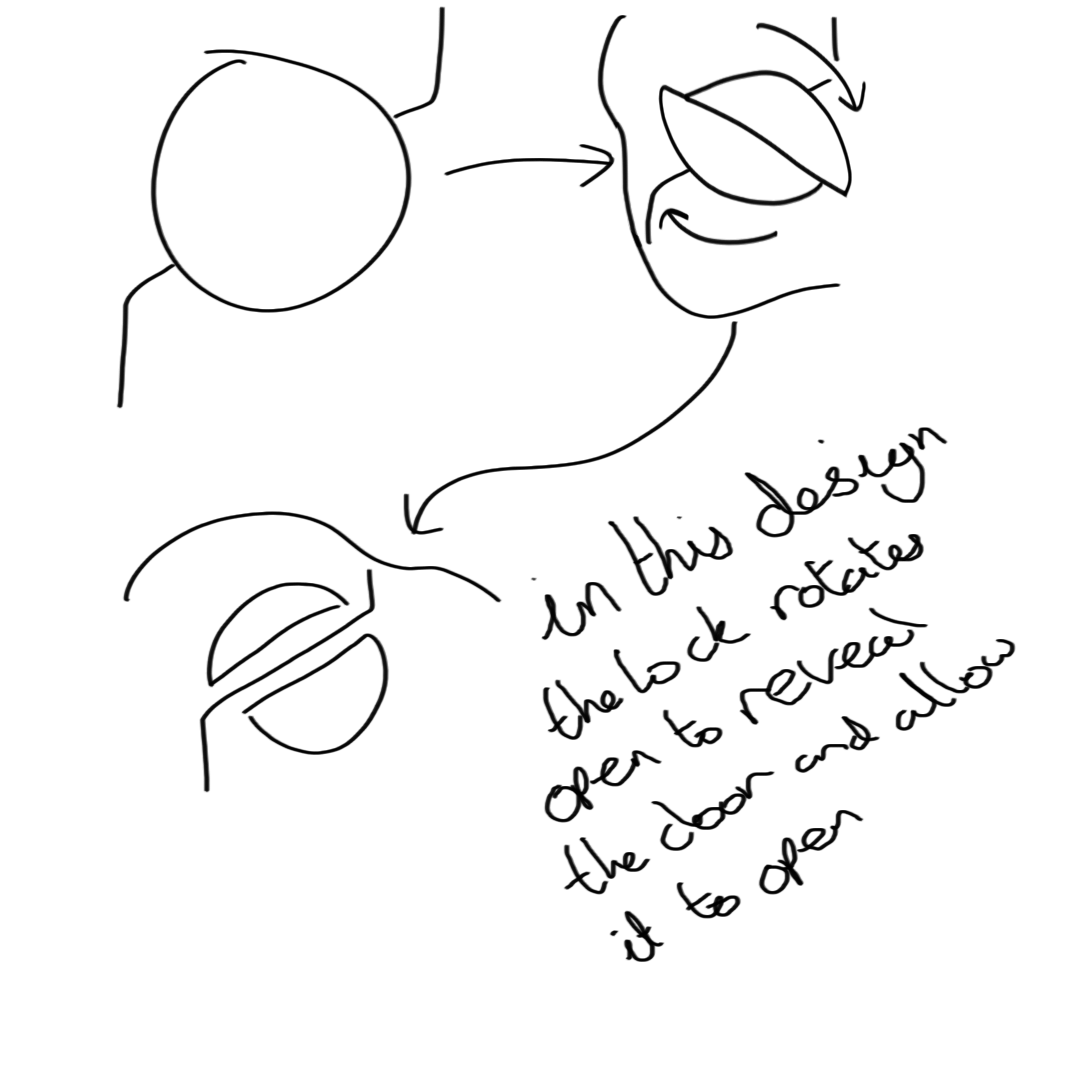 in this design
the lock rotates
open to reveal
the door and allow
it to open